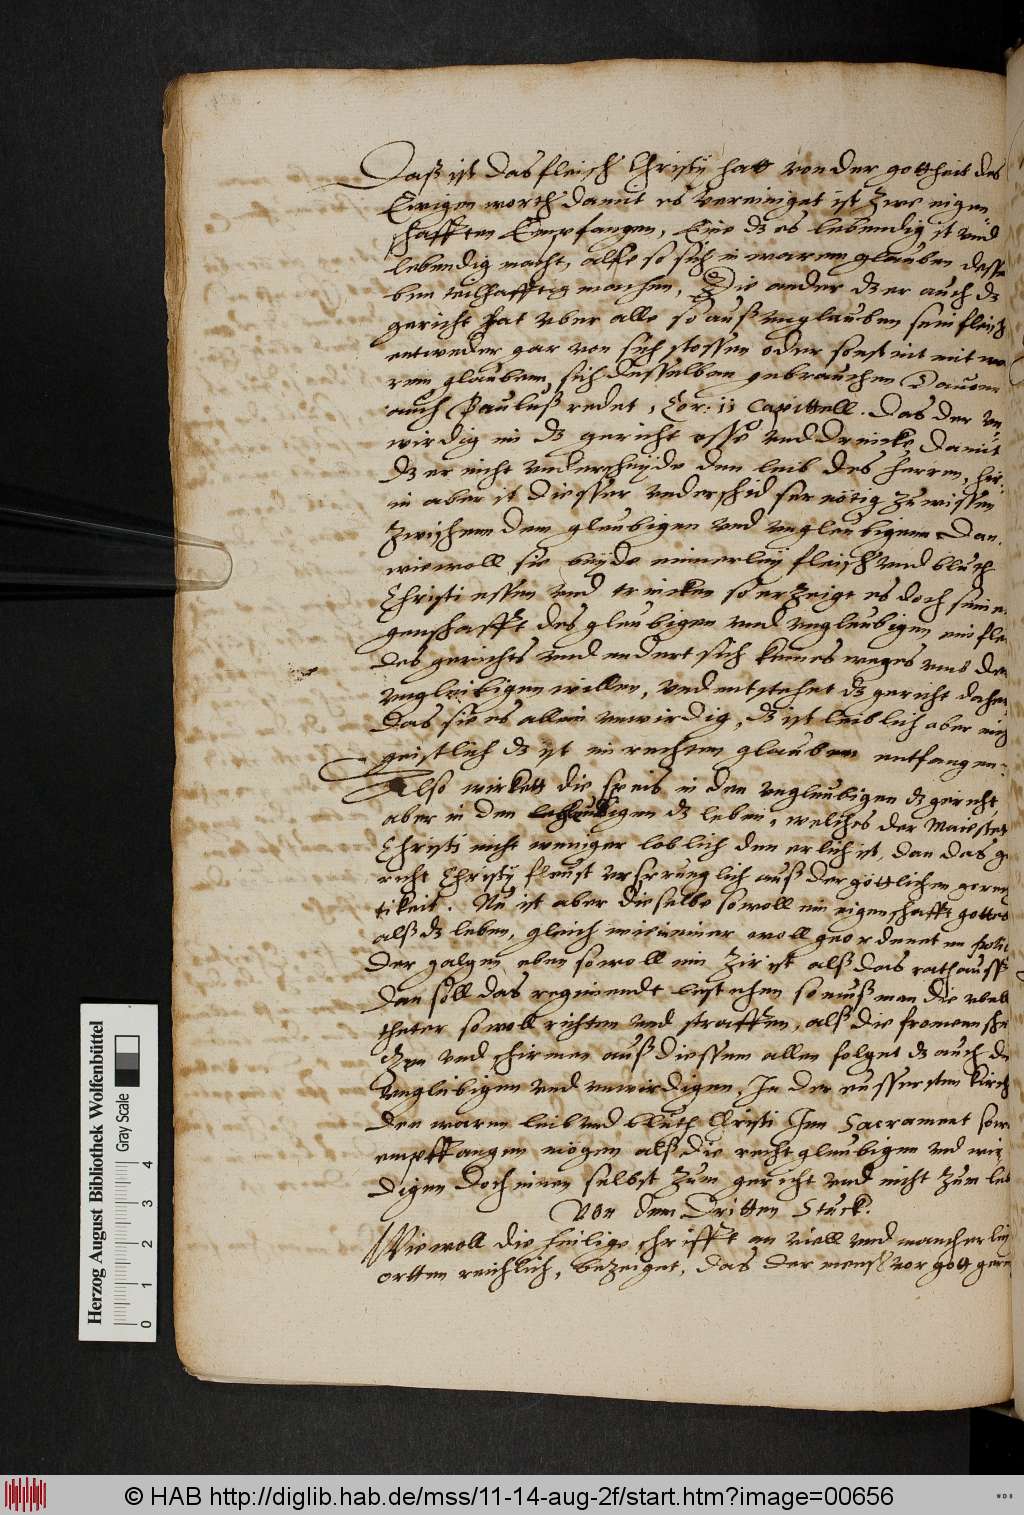 Daß ist das fleisch Christj hatt von der gottheit des
Ewigen worth damit es vereiniget ist Zwe eigen
schafften Empfangen, Eine dz es lebendig ist vnd
lebendig macht, alle so sich in warem glauben desse
ben teilhafftig machen, Die ander dz er auch dz
gericht hat vber alle so auß vnglauben sein fleisch
entweder gar von sich stossen oder sonst nit mit wa
rem glauben, sich desselben gebrauchen Dauon
auch Pauluß redet, Cor: 11 Capittell. Das der vn
wirdig im dz gericht esse vnd drincke damit
dz er nicht vnderscheyde den leib des herren, hir
in aber ist diesser vnderschid ser nötig zu wissen
Zwischenn den gleubigen vnd vngleubigenn Dan
wiewoll sie beyde einnerley fleisch vnd bluth
Christi essen vnd trincken so erzeigt es doch sein e
genschafft des gleubigen vnd vngleubigen ein fle
des gerichts vnd endert sich keines weges vmb der
vngleibigen willen, vnd entstehet dz gericht daher
Das sie es allein vnwirdig, dz ist leiblich aber nich
geistlich dz ist in rechtem glauben entfangen
Also wirkett die speis in den vngleubigen dz gericht
aber in den gleubigen dz leben, welches der Maiestet
Christi nicht weniger loblich den erlich ist, dan das g
richt Christj fleust vrsprunglich auß der göttlichen geree
tikeit. Nu ist aber dieselbe sowoll ein eigenschafft gottes
alß dz leben, gleich wie in einer woll geordenten polic
der galgen eben sowoll ein Zir ist alß das rathauß
Dan soll das regimendt bestehen so muß man die vbell
theter sowoll richten vnd straffen, alß die fromenn sch
tzen vnd schirmen auß diessem allen folget dz auch di
vngleibigen vnd vnwirdigen, In der eussersten kirch
den waren leib vnd bluth Christi Im Sacrament sow
empffangen mögen alß die recht gleubigen vnd wir
digen doch innen selbst zum gericht vnd nicht zum leb
Von dem Dritten Stuck.
Wiewoll die heilige schrifft an viell vnd mancherley
ortten reichlich, bezeiget, das der mensch vor gott gere
Herzog August Bibliothek Wolfenbüttel
Gray Scale
0 1 2 3 4
© HAB http://diglib.hab.de/mss/11-14-aug-2f/start.htm?image=00656